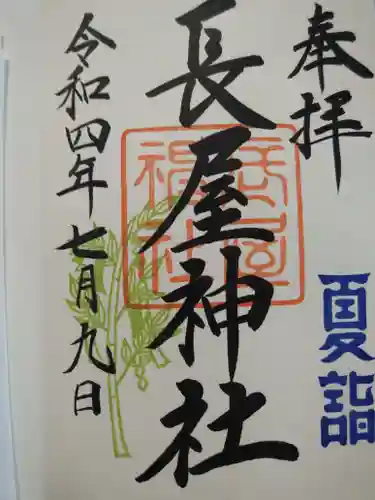 奉拝
夏詣
長屋神社
令和四年七月九日